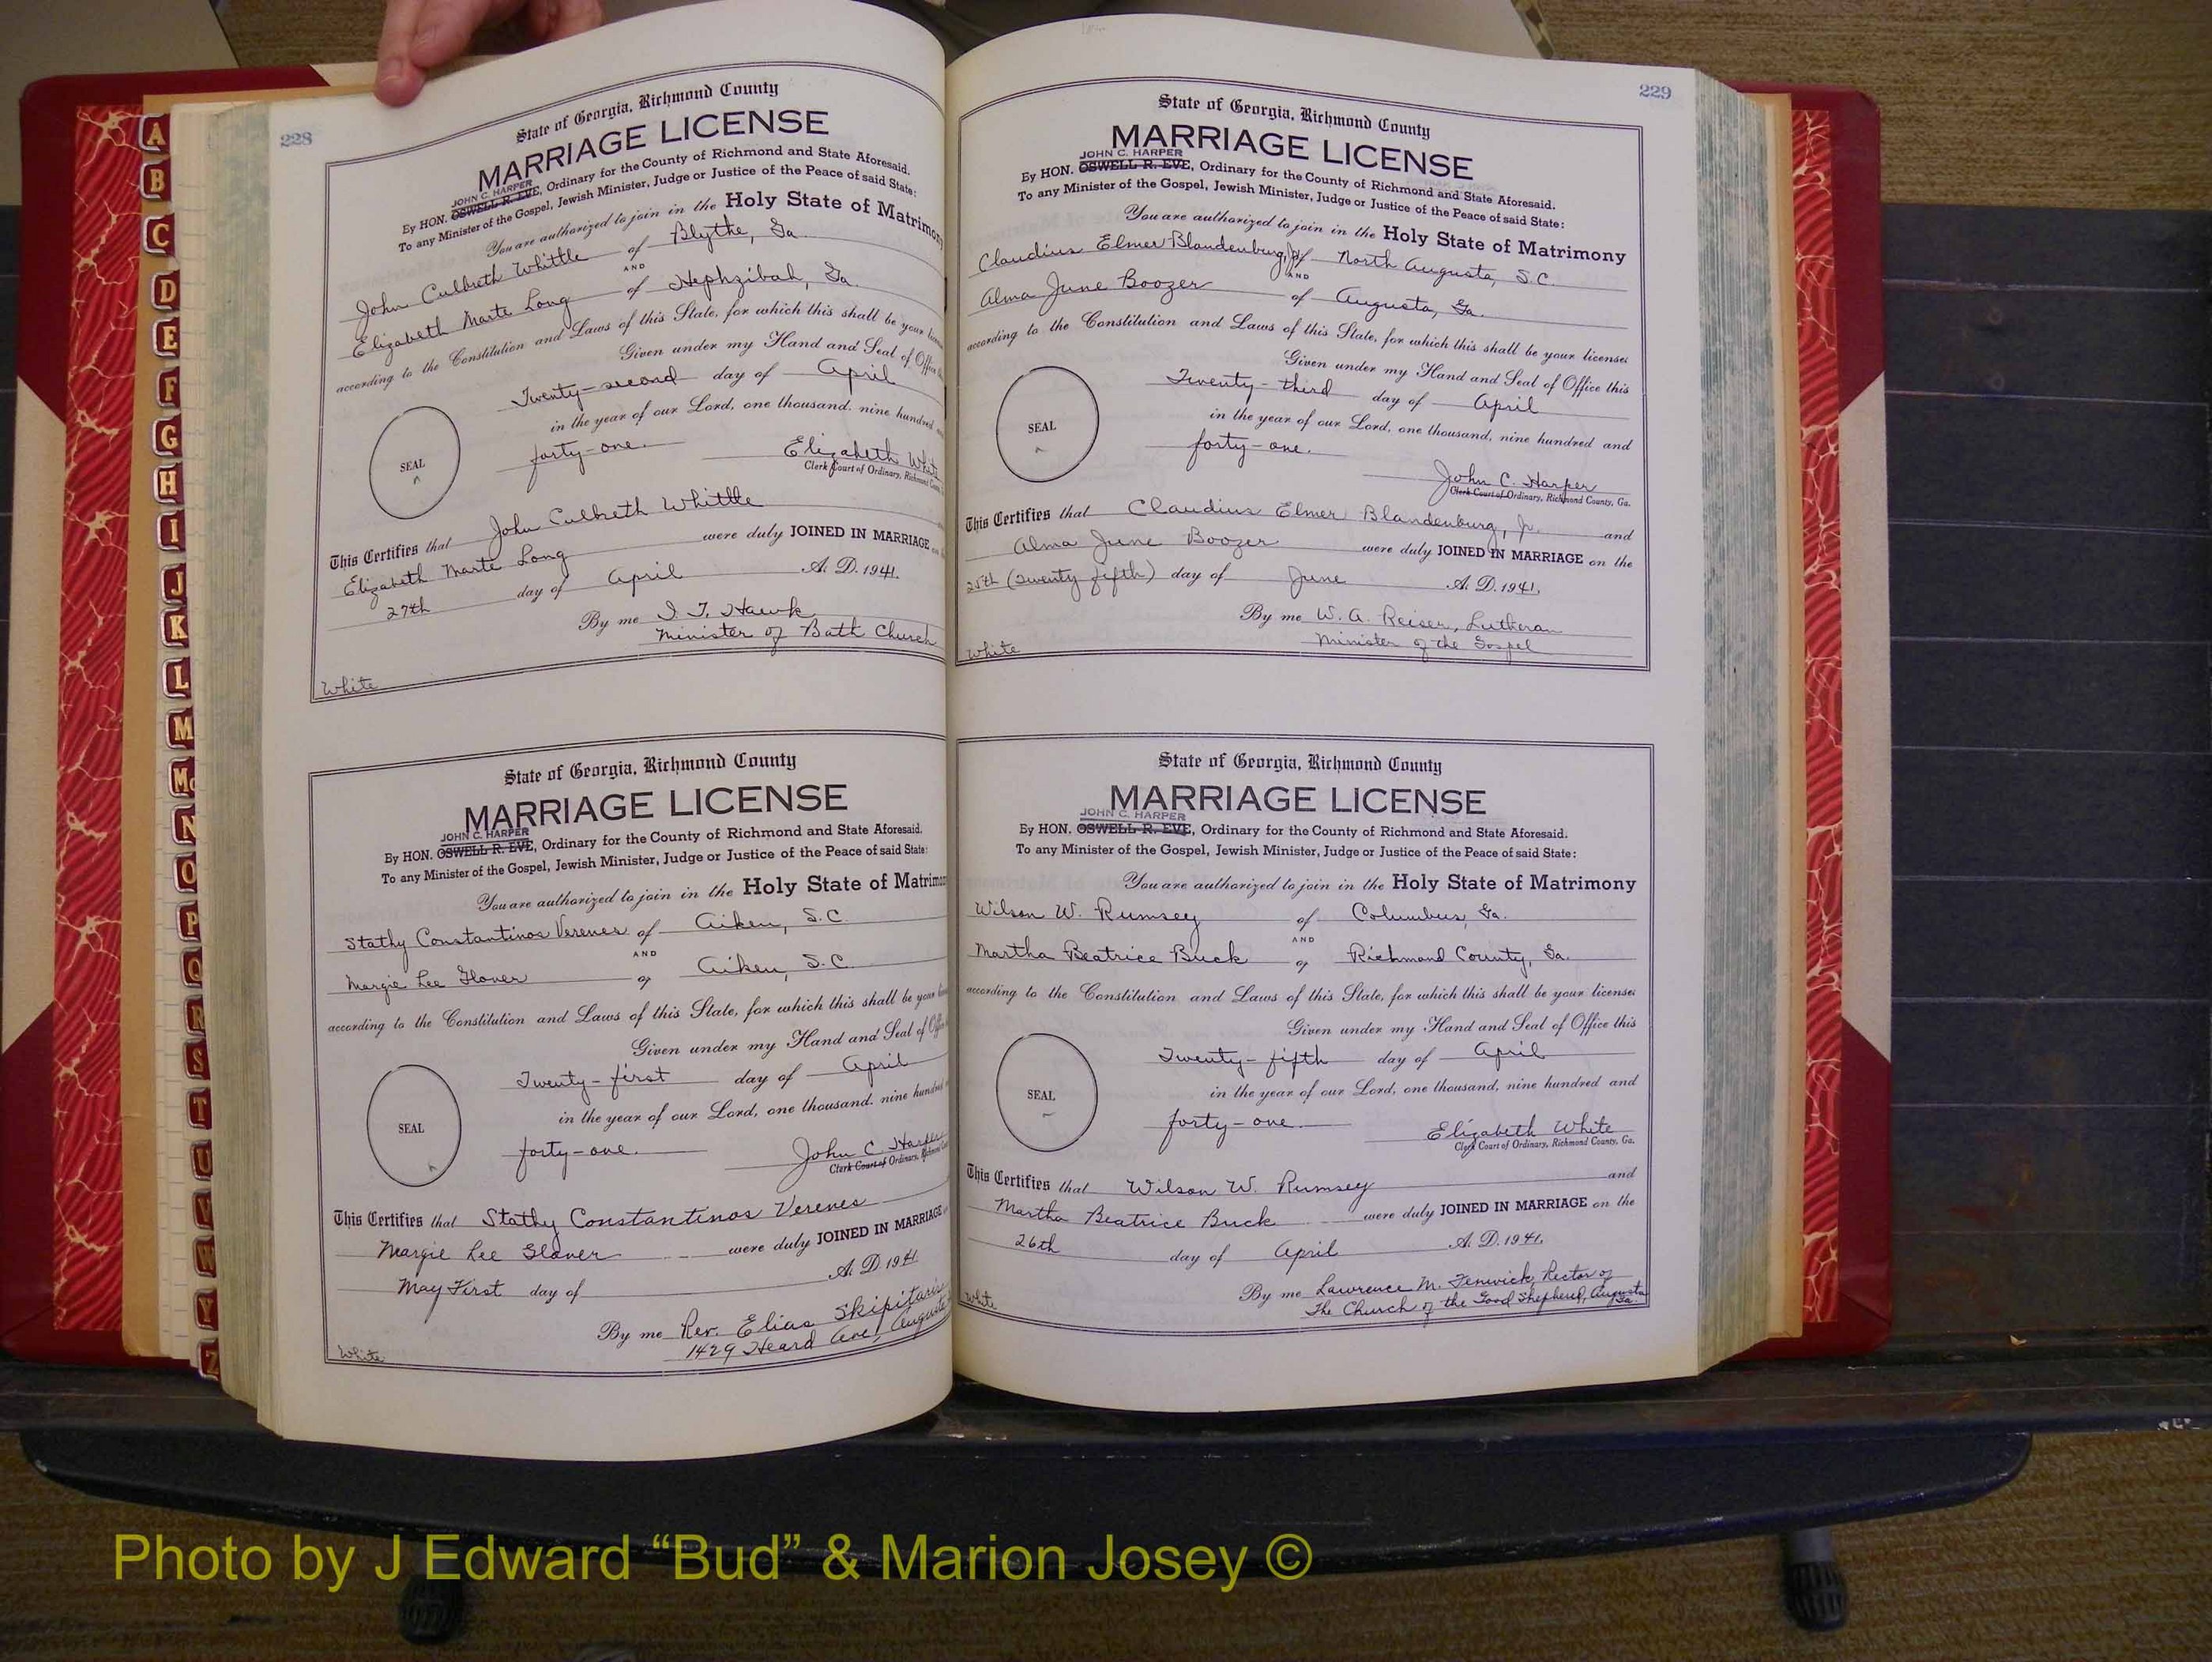 228
State of Georgia, Richmond County
MARRIAGE LICENSE
JOHN C. HARPER
By HON. OSWELL R. EVE, Ordinary for the County of Richmond and State Aforesaid.
To any Minister of the Gospel, Jewish Minister, Judge or Justice of the Peace of said State:
You are authorized to join in the Holy State of Matrimony
John Culbreth Whittle of Blythe, Ga.
AND
Elizabeth Marte Long of Hephzibah, Ga.
according to the Constitution and Laws of this State, for which this shall be your
Given under my Hand and Seal of Office
Twenty-second day of April
in the year of our Lord, one thousand, nine hundred
forty-one.
SEAL
Elizabeth White
Clerk Court of Ordinary, Richmond
This Certifies that John Culbreth Whittle
Elizabeth Marte Long were duly JOINED IN MARRIAGE
27th day of April A. D. 1941.
By me I. T. Hawk
Minister of Bath Church
White
State of Georgia, Richmond County
MARRIAGE LICENSE
JOHN C. HARPER
By HON. OSWELL R. EVE, Ordinary for the County of Richmond and State Aforesaid.
To any Minister of the Gospel, Jewish Minister, Judge or Justice of the Peace of said State:
You are authorized to join in the Holy State of Matrimony
Stathy Constantinos Verenes of Aiken, S.C.
AND
Margie Lee Glover of Aiken, S.C.
according to the Constitution and Laws of this State, for which this shall be your
Given under my Hand and Seal of Office
Twenty-first day of April
in the year of our Lord, one thousand, nine hundred
forty-one.
SEAL
John C. Harper
Clerk Court of Ordinary, Richmond
This Certifies that Stathy Constantinos Verenes
Margie Lee Glover were duly JOINED IN MARRIAGE
May First day of A. D. 1941
By me Rev. Elias Skipitaris
1429 Heard Ave, Augusta
White
229
State of Georgia, Richmond County
MARRIAGE LICENSE
JOHN C. HARPER
By HON. OSWELL R. EVE, Ordinary for the County of Richmond and State Aforesaid.
To any Minister of the Gospel, Jewish Minister, Judge or Justice of the Peace of said State:
You are authorized to join in the Holy State of Matrimony
Claudius Elmer Blandenburg, Jr. of North Augusta, S.C.
AND
Alma June Boozer of Augusta, Ga.
according to the Constitution and Laws of this State, for which this shall be your license:
Given under my Hand and Seal of Office this
Twenty-third day of April
in the year of our Lord, one thousand, nine hundred and
forty-one.
SEAL
John C. Harper
Clerk Court of Ordinary, Richmond County, Ga.
This Certifies that Claudius Elmer Blandenburg, Jr. and
Alma June Boozer were duly JOINED IN MARRIAGE on the
25th (twenty fifth) day of June A. D. 1941.
By me W. A. Reiser, Lutheran
Minister of the Gospel
White
State of Georgia, Richmond County
MARRIAGE LICENSE
JOHN C. HARPER
By HON. OSWELL R. EVE, Ordinary for the County of Richmond and State Aforesaid.
To any Minister of the Gospel, Jewish Minister, Judge or Justice of the Peace of said State:
You are authorized to join in the Holy State of Matrimony
Wilson W. Rumsey of Columbus, Ga.
AND
Martha Beatrice Buck of Richmond County, Ga.
according to the Constitution and Laws of this State, for which this shall be your license:
Given under my Hand and Seal of Office this
Twenty-fifth day of April
in the year of our Lord, one thousand, nine hundred and
forty-one.
SEAL
Elizabeth White
Clerk Court of Ordinary, Richmond County, Ga.
This Certifies that Wilson W. Rumsey and
Martha Beatrice Buck were duly JOINED IN MARRIAGE on the
26th day of April A. D. 1941.
By me Lawrence M. Fenwick, Rector of
The Church of the Good Shepherd, Augusta
Ga.
White
A
B
C
D
E
F
G
H
I
J
K
L
M
Mc
N
O
P
Q
R
S
T
U
V
W
Y
Z
Photo by J Edward “Bud” & Marion Josey ©